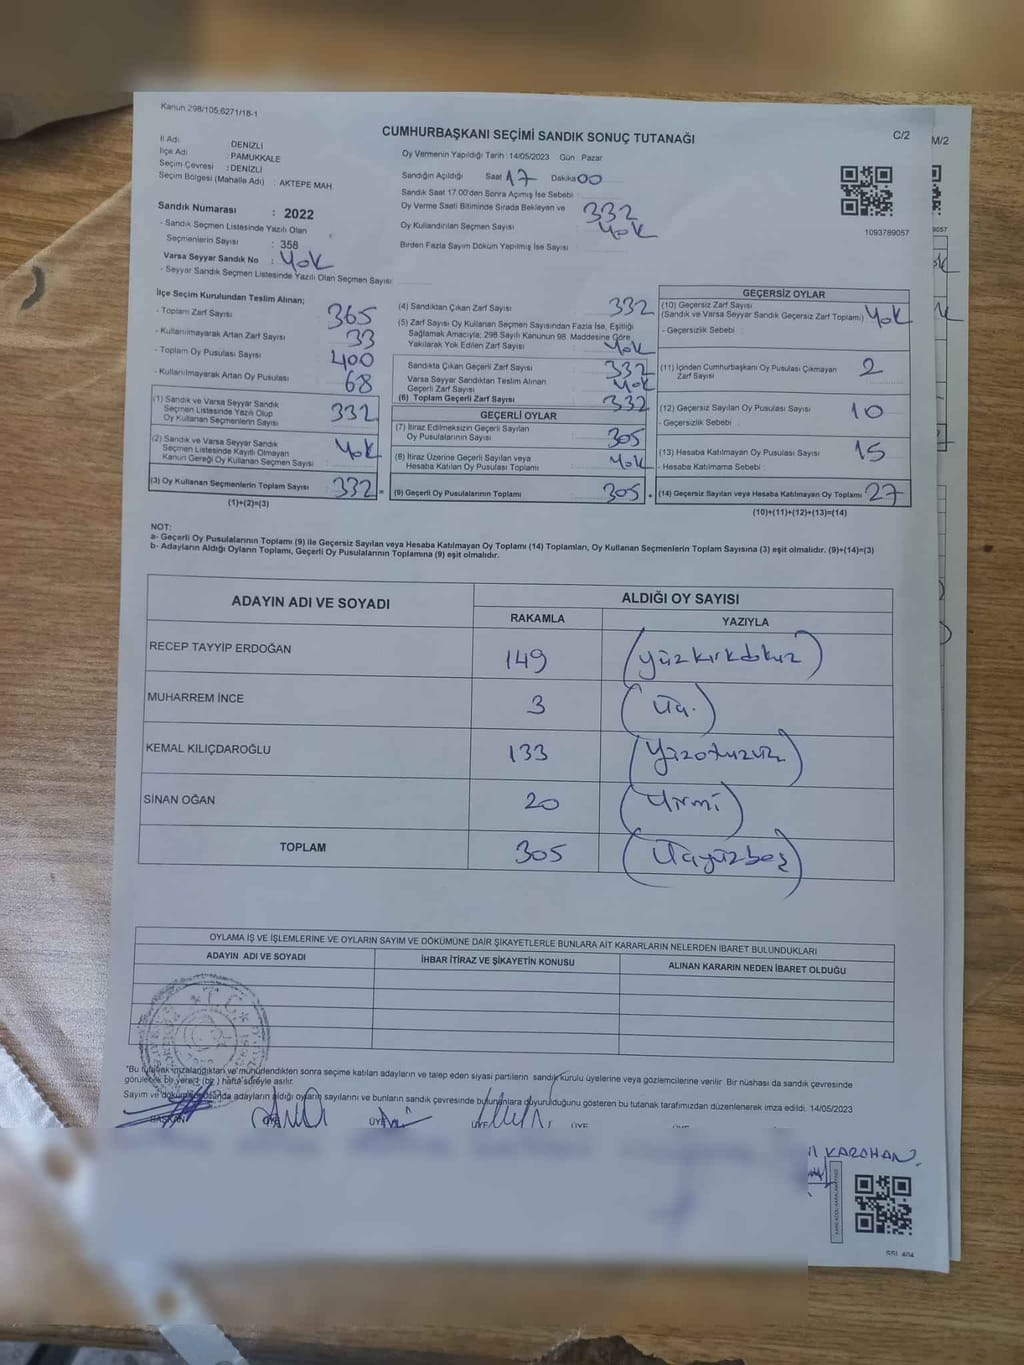 Kanun 298/105,6271/18-1
C/2
M/2
CUMHURBAŞKANI SEÇİMİ SANDIK SONUÇ TUTANAĞI
İl Adı : DENİZLİ
İlçe Adı : PAMUKKALE
Seçim Çevresi : DENİZLİ
Seçim Bölgesi (Mahalle Adı) : AKTEPE MAH.
Sandık Numarası : 2022
- Sandık Seçmen Listesinde Yazılı Olan
Seçmenlerin Sayısı : 358
Varsa Seyyar Sandık No : Yok
- Seyyar Sandık Seçmen Listesinde Yazılı Olan Seçmen Sayısı
Oy Vermenin Yapıldığı Tarih : 14/05/2023 Gün : Pazar
Sandığın Açıldığı Saat 17 Dakika 00
Sandık Saat 17.00'den Sonra Açımış İse Sebebi
Oy Verme Saati Bitiminde Sırada Bekleyen ve
Oy Kullandırılan Seçmen Sayısı 332
Birden Fazla Sayım Döküm Yapılmış İse Sayısı Yok
1093789057
İlçe Seçim Kurulundan Teslim Alınan;
- Toplam Zarf Sayısı 365
- Kullanılmayarak Artan Zarf Sayısı 33
- Toplam Oy Pusulası Sayısı 400
- Kullanılmayarak Artan Oy Pusulası 68
(1) Sandık ve Varsa Seyyar Sandık
Seçmen Listesinde Yazılı Olup
Oy Kullanan Seçmenlerin Sayısı 332
(2) Sandık ve Varsa Seyyar Sandık
Seçmen Listesinde Kayıtlı Olmayan
Kanun Gereği Oy Kullanan Seçmen Sayısı Yok
(3) Oy Kullanan Seçmenlerin Toplam Sayısı 332 =
(1)+(2)=(3)
(4) Sandıktan Çıkan Zarf Sayısı 332
(5) Zarf Sayısı Oy Kullanan Seçmen Sayısından Fazla İse, Eşitliği
Sağlamak Amacıyla; 298 Sayılı Kanunun 98. Maddesine Göre
Yakılarak Yok Edilen Zarf Sayısı Yok
Sandıkta Çıkan Geçerli Zarf Sayısı 332
Varsa Seyyar Sandıktan Teslim Alınan
Geçerli Zarf Sayısı Yok
(6) Toplam Geçerli Zarf Sayısı 332
GEÇERLİ OYLAR
(7) İtiraz Edilmeksizin Geçerli Sayılan
Oy Pusulalarının Sayısı 305
(8) İtiraz Üzerine Geçerli Sayılan veya
Hesaba Katılan Oy Pusulası Toplamı Yok
(9) Geçerli Oy Pusulalarının Toplamı 305 +
GEÇERSİZ OYLAR
(10) Geçersiz Zarf Sayısı
(Sandık ve Varsa Seyyar Sandık Geçersiz Zarf Toplamı) Yok
- Geçersizlik Sebebi
(11) İçinden Cumhurbaşkanı Oy Pusulası Çıkmayan
Zarf Sayısı 2
(12) Geçersiz Sayılan Oy Pusulası Sayısı 10
- Geçersizlik Sebebi
(13) Hesaba Katılmayan Oy Pusulası Sayısı 15
- Hesaba Katılmama Sebebi
(14) Geçersiz Sayılan veya Hesaba Katılmayan Oy Toplamı 27
(10)+(11)+(12)+(13)=(14)
NOT:
a- Geçerli Oy Pusulalarının Toplamı (9) ile Geçersiz Sayılan veya Hesaba Katılmayan Oy Toplamı (14) Toplamları, Oy Kullanan Seçmenlerin Toplam Sayısına (3) eşit olmalıdır. (9)+(14)=(3)
b- Adayların Aldığı Oyların Toplamı, Geçerli Oy Pusulalarının Toplamına (9) eşit olmalıdır.
ADAYIN ADI VE SOYADI
ALDIĞI OY SAYISI
RAKAMLA YAZIYLA
RECEP TAYYİP ERDOĞAN 149 (yüzkırkdokuz)
MUHARREM İNCE 3 (üç.)
KEMAL KILIÇDAROĞLU 133 (yüzotuzüç)
SİNAN OĞAN 20 (Yirmi)
TOPLAM 305 (Üçyüzbeş)
OYLAMA İŞ VE İŞLEMLERİNE VE OYLARIN SAYIM VE DÖKÜMÜNE DAİR ŞİKAYETLERLE BUNLARA AİT KARARLARIN NELERDEN İBARET BULUNDUKLARI
ADAYIN ADI VE SOYADI İHBAR İTİRAZ VE ŞİKAYETİN KONUSU ALINAN KARARIN NEDEN İBARET OLDUĞU
T.C.
*Bu tutanak imzalandıktan ve mühürlendikten sonra seçime katılan adayların ve talep eden siyasi partilerin sandık kurulu üyelerine veya gözlemcilerine verilir. Bir nüshası da sandık çevresinde
görülebilir bir yere (bir) hafta süreyle asılır.
Sayım ve döküm sonunda adayların aldığı oyların sayılarını ve bunların sandık çevresinde bulunanlara duyurulduğunu gösteren bu tutanak tarafımızdan düzenlenerek imza edildi. 14/05/2023
BAŞKAN ÜYE ÜYE ÜYE
KARAHAN